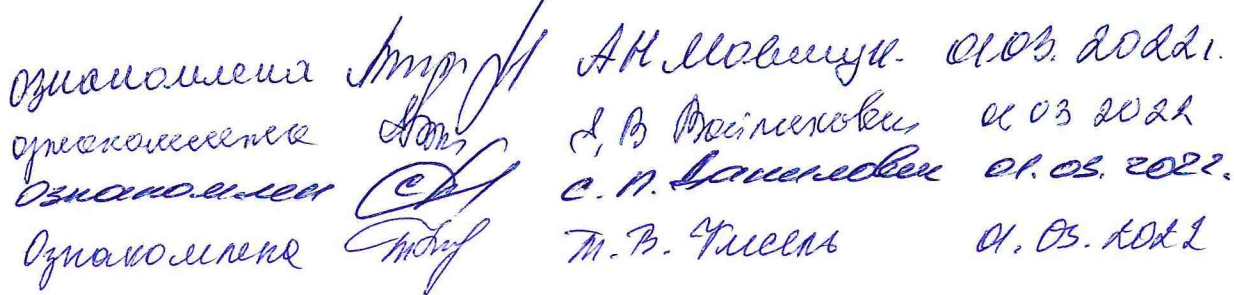 ознакомлена А Н Мовшук. 01.03. 2022г.
ознакомлена А, В Войтехович 01 03 2022
ознакомлен С. П. Данилович 01.03. 2022.
Ознакомлена Т. В. Кисель 01.03.2022